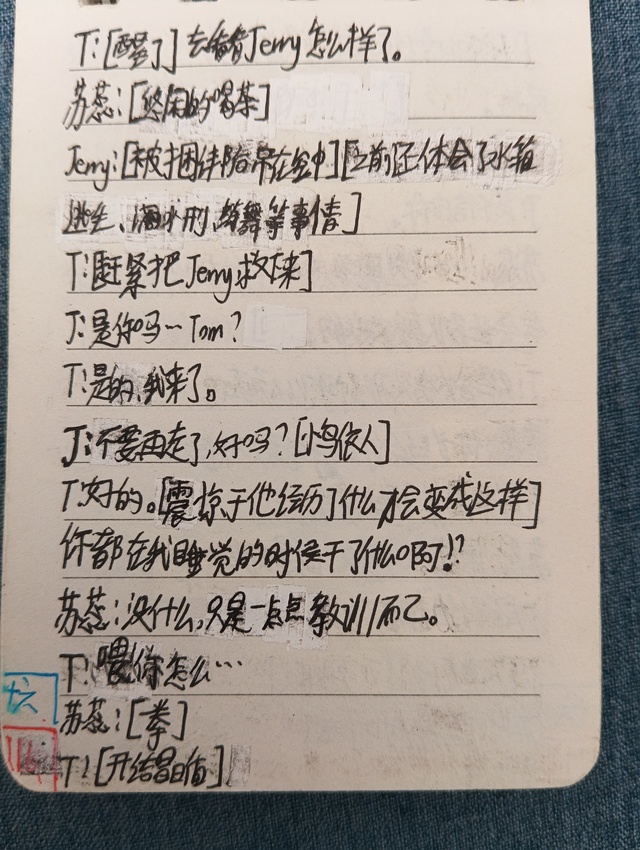 T:[醒了]去看看Jerry怎么样了。
苏蕊:[悠闲的喝茶]
Jerry:[被捆绑 吊在空中][之前还体会了水箱
逃生、海水刑 跳舞等事情]
T:[赶紧把Jerry救下来]
J:是你吗…Tom?
T:是的,我来了。
J:不要再走了,好吗?[小鸟依人]
T:好的。[震惊于他经历了什么才会变成这样]
你都在我睡觉的时候干了什么啊!?
苏蕊:没什么,只是一点点教训而已。
T:喂你怎么…
苏蕊:[拳]
T:[开始昏迷]